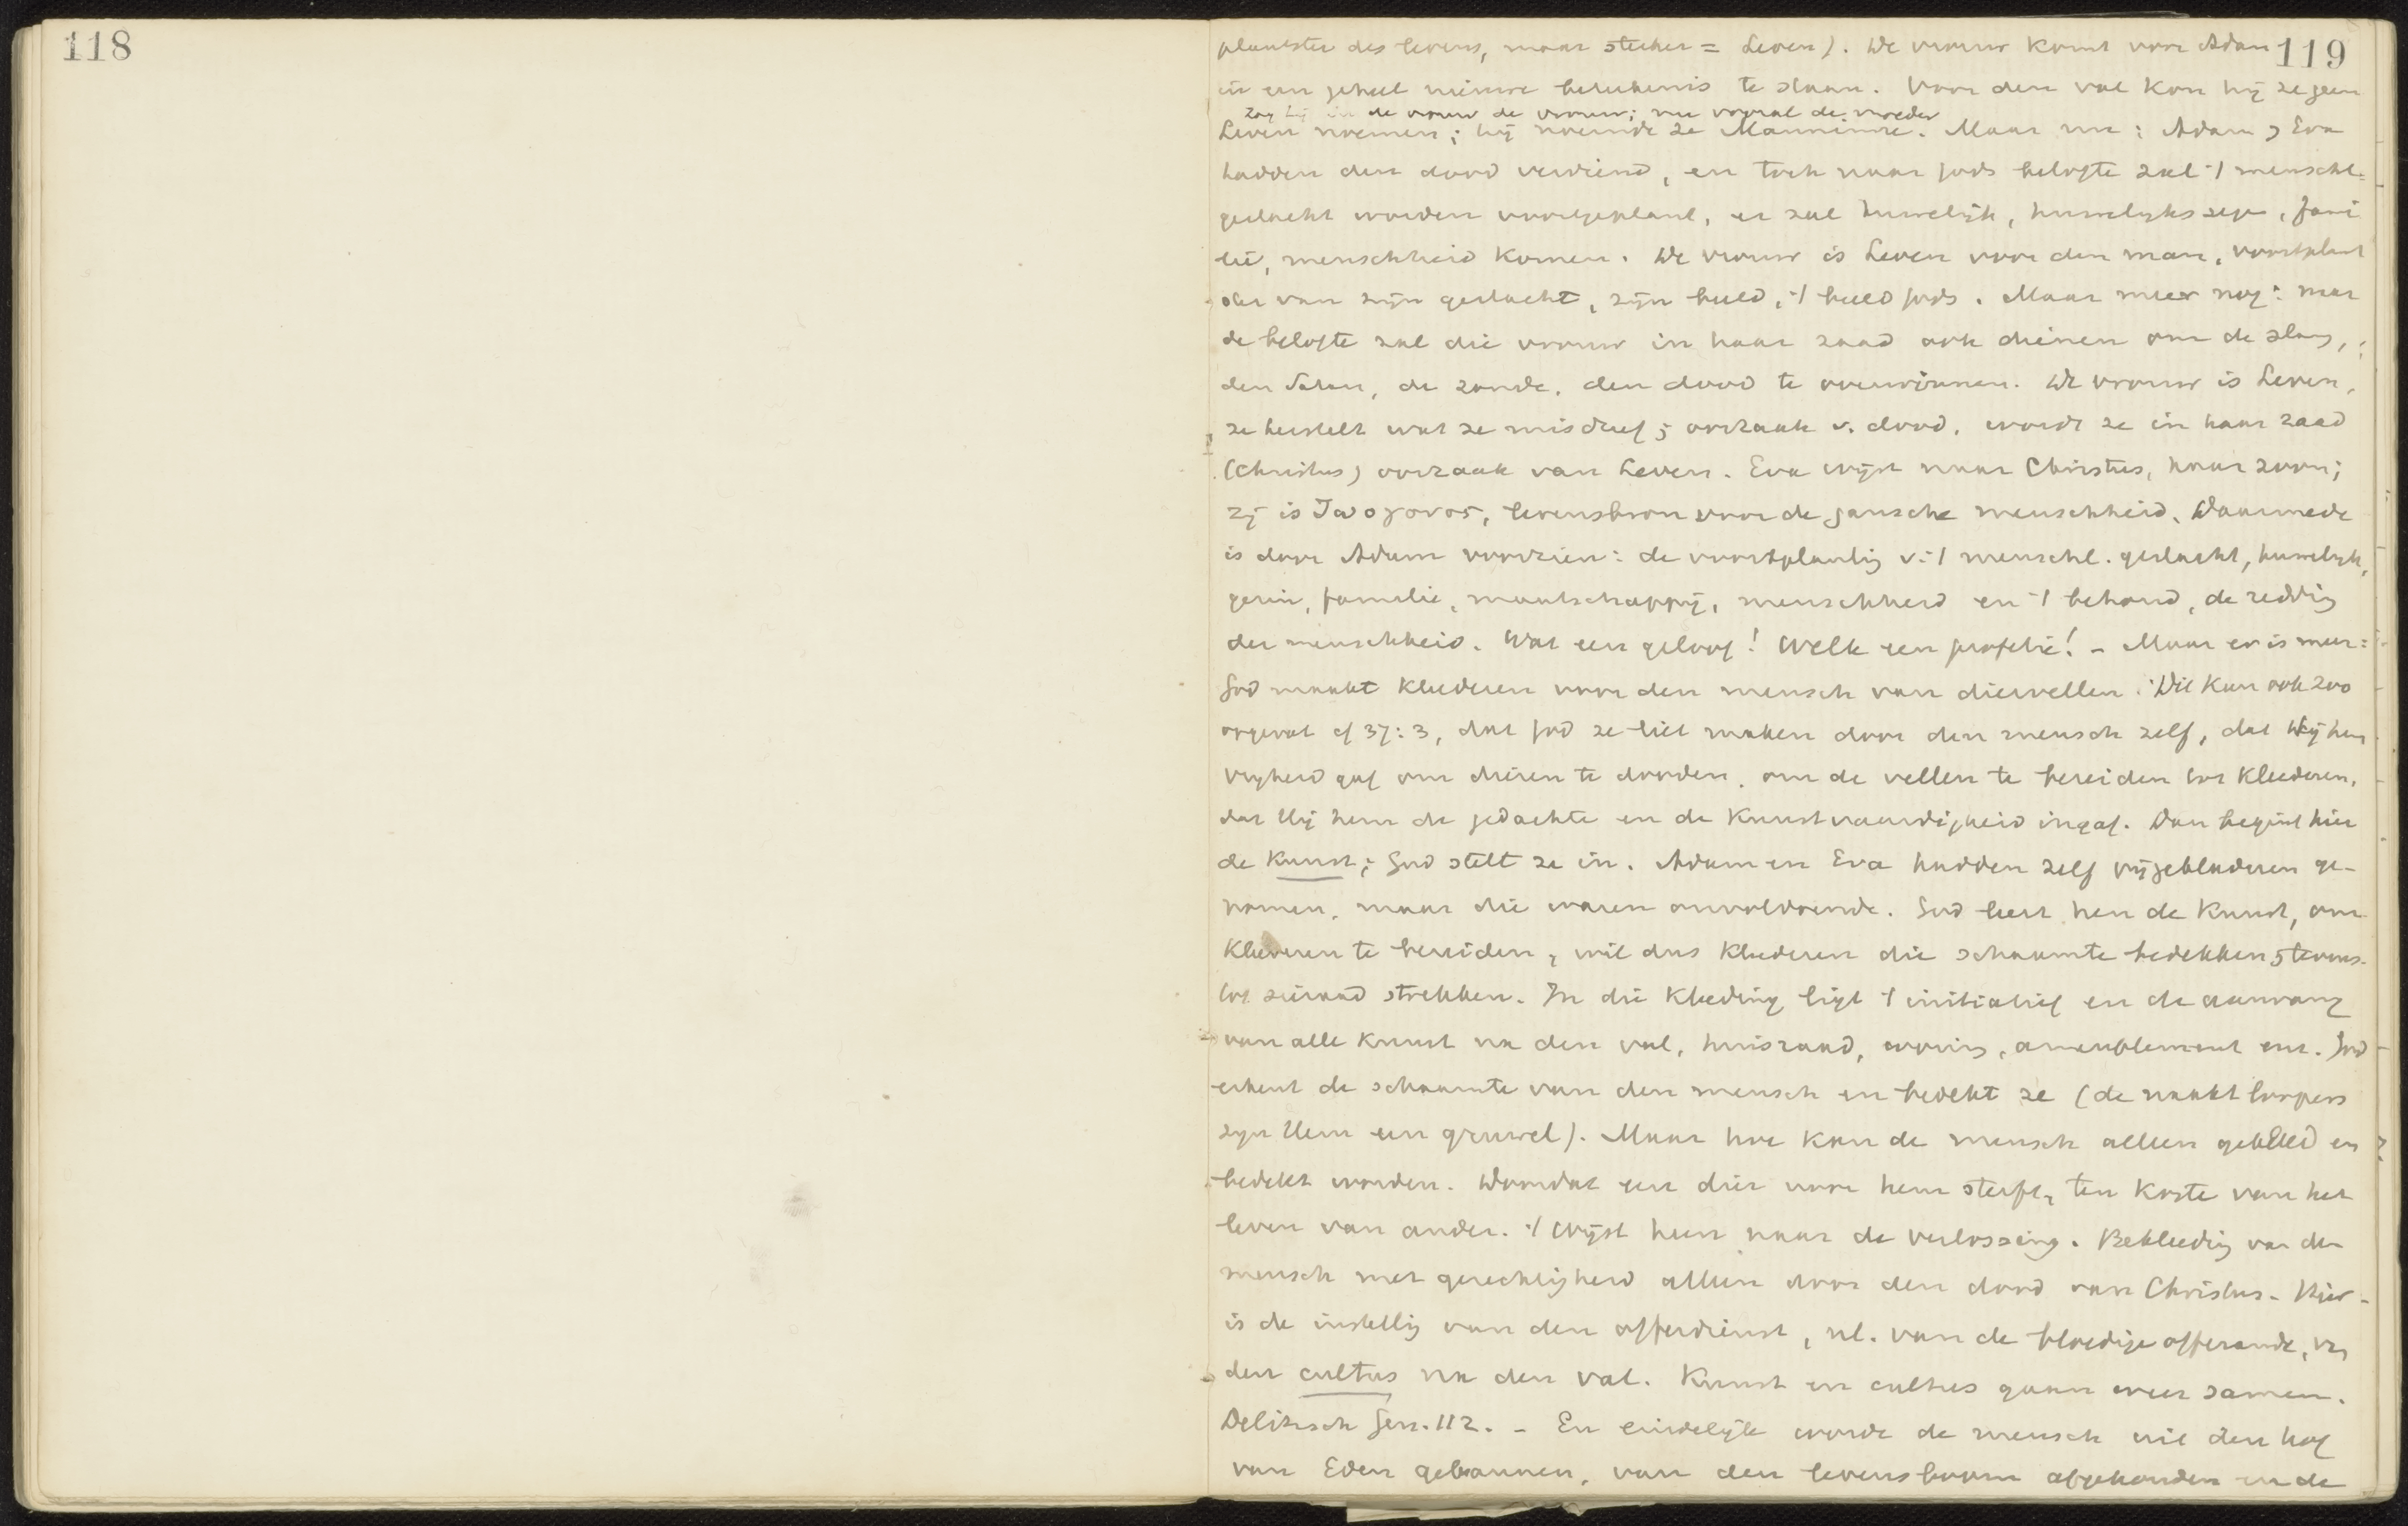 118
119
plantster des levens, maar sterker = Leven). De vrouw komt voor Adam
in een geheel nieuwe beteekenis te staan. Voor den val kon hij ze geen
zag hij in de vrouw de vrouw; nu vooral de moeder
Leven noemen; hij noemde ze Manninne. Maar nu: Adam en Eva
hadden den dood verdiend, en toch naar Gods belofte zal 't menschl.
geslacht worden voortgeplant, er zal huwelijk, huwelijkszegen, fami
lie, menschheid komen. De vrouw is Leven voor den man, voortplant
ster van zijn geslacht, zijn beeld, 't beeld Gods. Maar meer nog: naar
de belofte zal die vrouw in haar zaad ook dienen om de slang,
den Satan, de zonde, den dood te overwinnen. De vrouw is Leven,
ze herstelt wat ze misdreef; oorzaak v. dood, wordt ze in haar zaad
(Christus) oorzaak van Leven. Eva wijst naar Christus, haar zoon;
zij is ζωογονος, levensbron voor de gansche menschheid. Daarmede
is door Adam voorzien: de voortplanting v. 't menschl. geslacht, huwelijk,
gezin, familie, maatschappij, menschheid en 't behoud, de redding
der menschheid. Wat een geloof! Welk een profetie! - Maar er is meer:
God maakt kleederen voor den mensch van diervellen. Dit kan ook zoo
opgevat cf 37:3, dat God ze liet maken door den mensch zelf, dat Hij hem
vrijheid gaf om dieren te dooden, om de vellen te bereiden tot kleederen,
dat Hij hem de gedachte en de kunstvaardigheid ingaf. Dan begint hier
de Kunst; God stelt ze in. Adam en Eva hadden zelf vijgebladeren ge-
nomen, maar die waren onvoldoende. God leert hen de kunst, om
kleederen te bereiden, wil dus kleederen die schaamte bedekken en tevens
tot sieraad strekken. In die kleeding ligt 't initiatief en de aanvang
van alle kunst na den val, huisraad, woning, ameublement enz. God
erkent de schaamte van den mensch en bedekt ze (de naaktlopers
zijn Hem een gruwel). Maar hoe kan de mensch alleen gekleed en
bedekt worden. Doordat een dier voor hem sterft, ten koste van het
leven van ander. 't Wijst heen naar de verlossing. Bekleeding van den
mensch met gerechtigheid alleen door den dood van Christus. Hier
is de instelling van den offerdienst, nl. van de bloedige offerande, van
den cultus na den val. Kunst en cultus gaan weer samen.
Delitzsch Gen. 112. - En eindelijk wordt de mensch uit den hof
van Eden gebannen, van den levensboom afgehouden en de